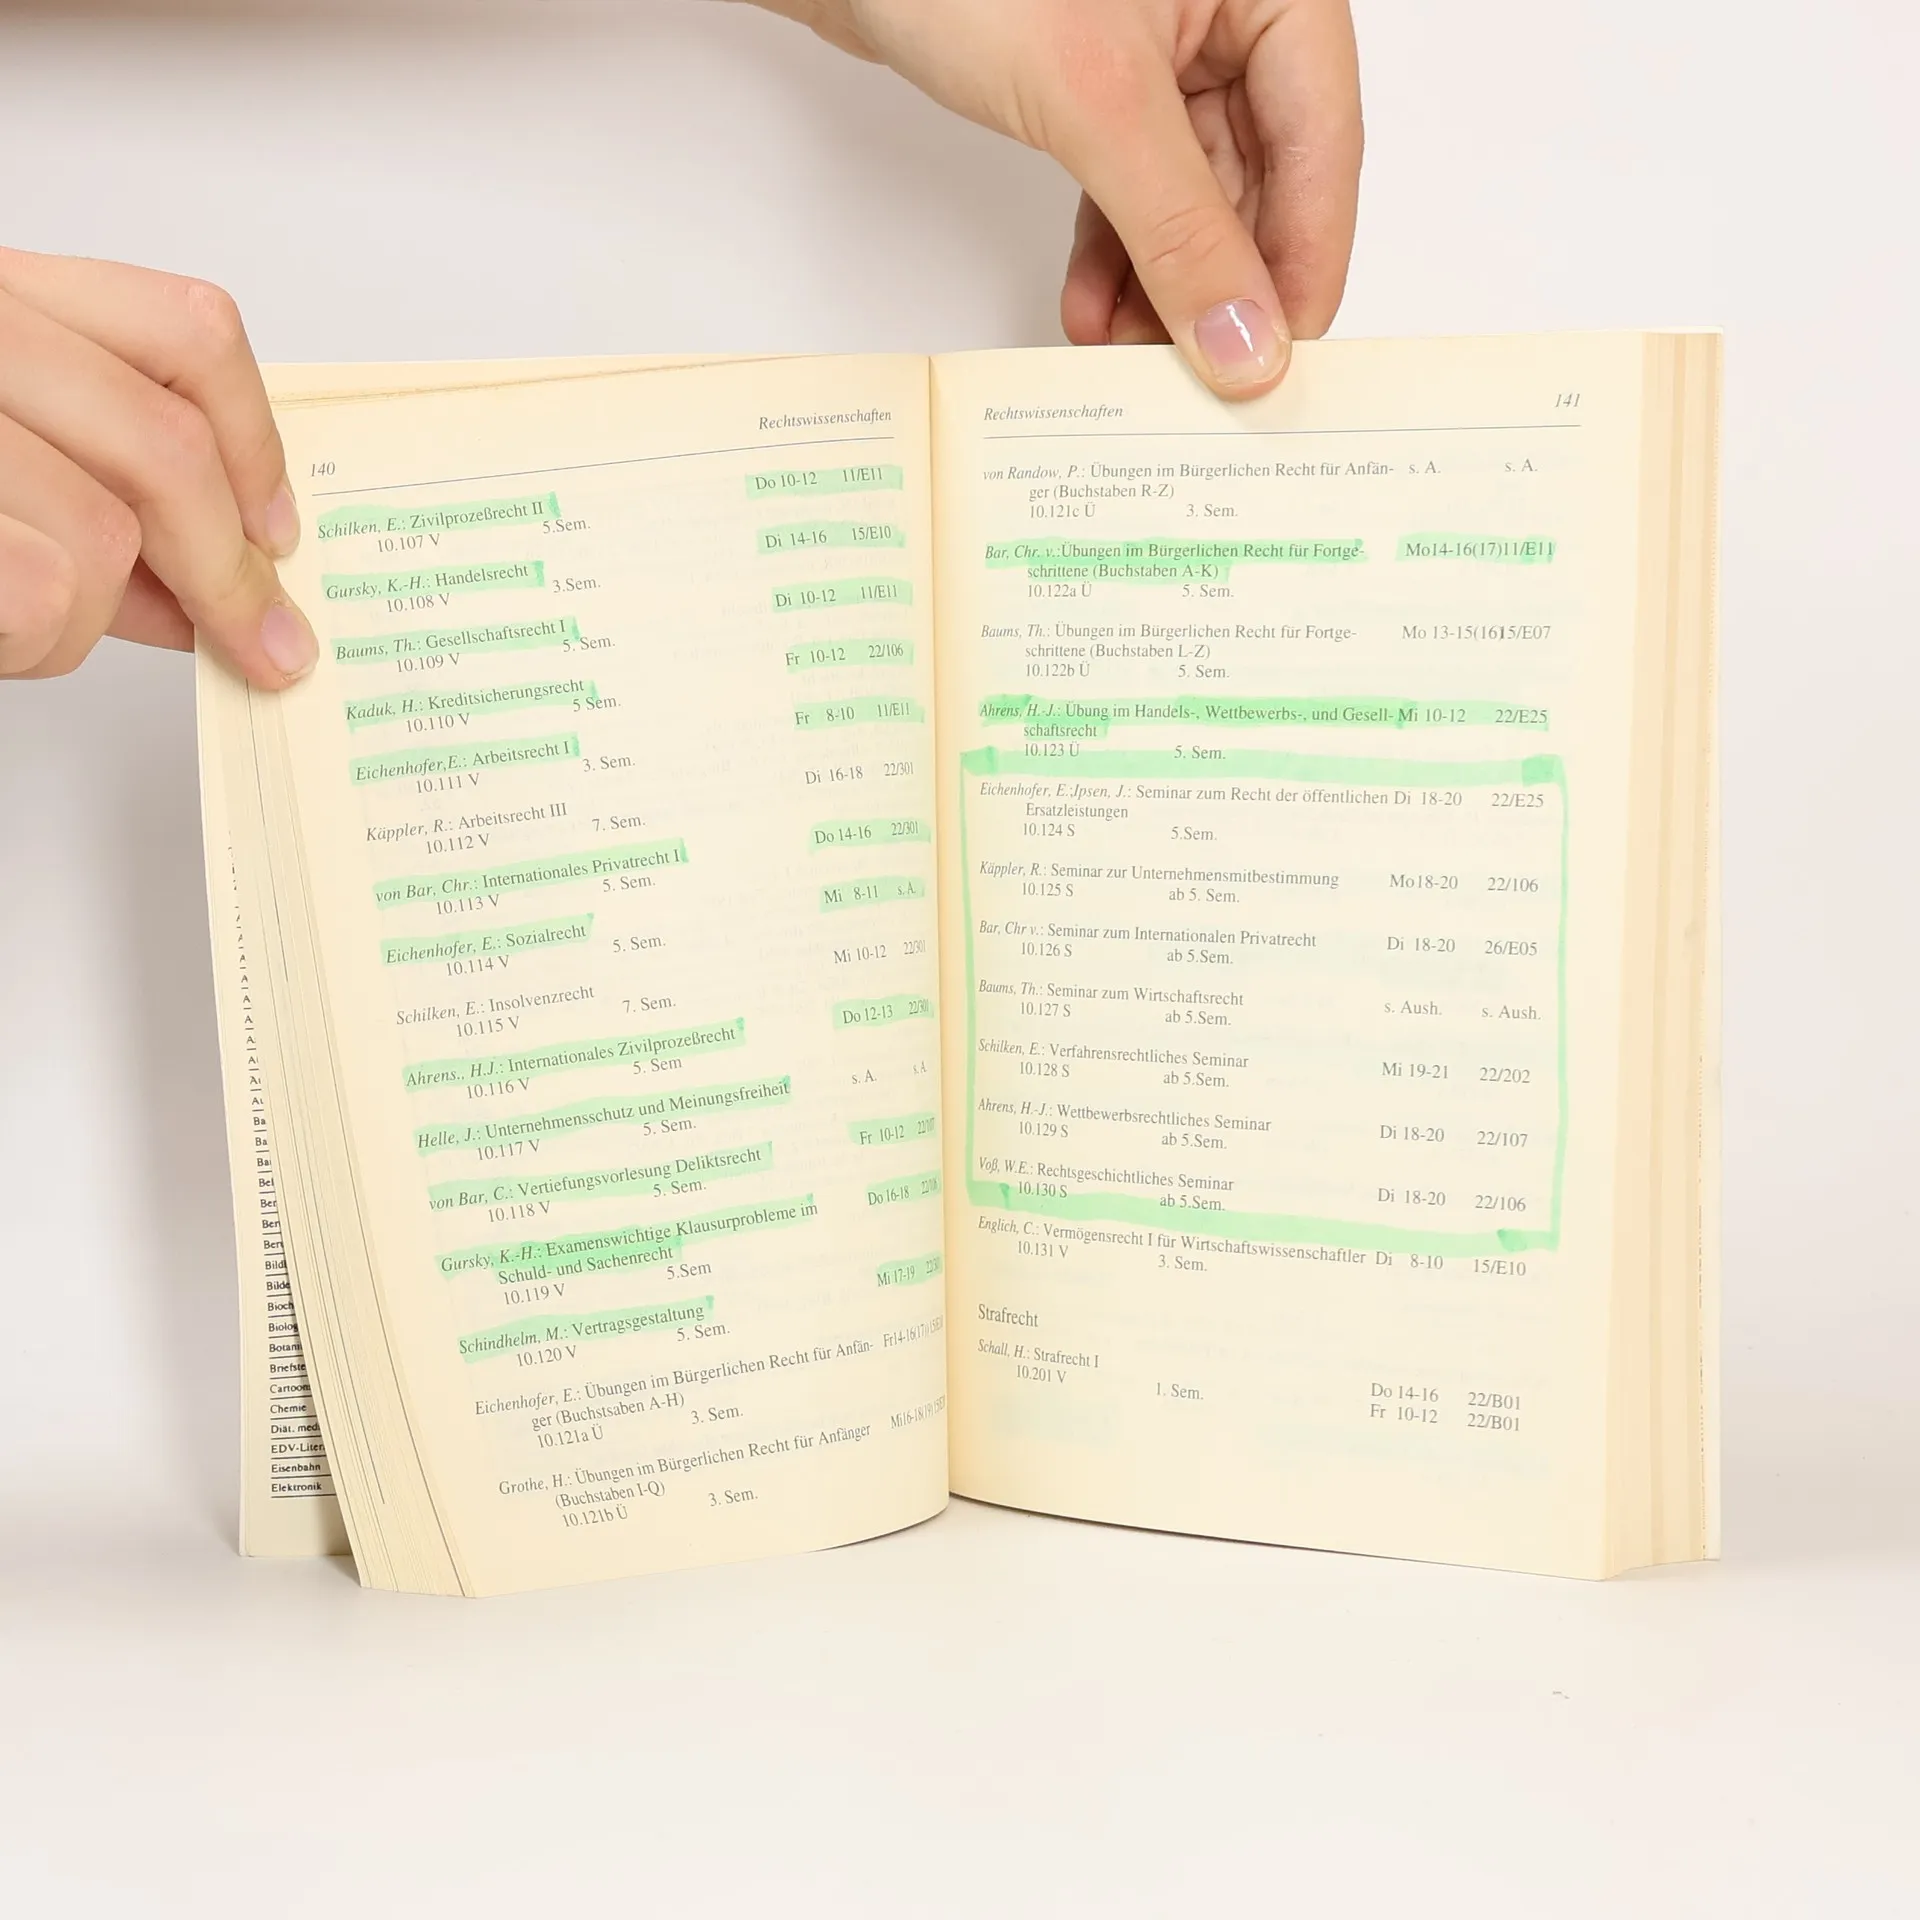 140 Rechtswissenschaften
Schilken, E.: Zivilprozeßrecht II Do 10-12 11/E11
10.107 V 5.Sem.
Gursky, K.-H.: Handelsrecht Di 14-16 15/E10
10.108 V 3.Sem.
Baums, Th.: Gesellschaftsrecht I Di 10-12 11/E11
10.109 V 5. Sem.
Kaduk, H.: Kreditsicherungsrecht Fr 10-12 22/106
10.110 V 5 Sem.
Eichenhofer,E.: Arbeitsrecht I Fr 8-10 11/E11
10.111 V 3. Sem.
Käppler, R.: Arbeitsrecht III Di 16-18 22/301
10.112 V 7. Sem.
von Bar, Chr.: Internationales Privatrecht I Do 14-16 22/301
10.113 V 5. Sem.
Eichenhofer, E.: Sozialrecht Mi 8-11 s.A.
10.114 V 5. Sem.
Schilken, E.: Insolvenzrecht Mi 10-12 22/301
10.115 V 7. Sem.
Ahrens., H.J.: Internationales Zivilprozeßrecht Do 12-13 22/301
10.116 V 5. Sem
Helle, J.: Unternehmensschutz und Meinungsfreiheit s. A. s.A.
10.117 V 5. Sem.
von Bar, C.: Vertiefungsvorlesung Deliktsrecht Fr 10-12 22/107
10.118 V 5. Sem.
Gursky, K.-H.: Examenswichtige Klausurprobleme im Do 16-18
Schuld- und Sachenrecht
10.119 V 5.Sem
Schindhelm, M.: Vertragsgestaltung Mi 17-19
10.120 V 5. Sem.
Eichenhofer, E.: Übungen im Bürgerlichen Recht für Anfän- Fr14-16(17)
ger (Buchstsaben A-H)
10.121a Ü 3. Sem.
Grothe, H.: Übungen im Bürgerlichen Recht für Anfänger Mi16-18(19)
(Buchstaben I-Q)
10.121b Ü 3. Sem.
Ba
Ba
Bai
Bel
Ber
Ber
Ber
Bild
Bilde
Bioch
Biolog
Botani
Briefste
Cartoon
Chemie
Diät. med
EDV-Liter
Eisenbahn
Elektronik
Rechtswissenschaften 141
von Randow, P.: Übungen im Bürgerlichen Recht für Anfän- s. A. s. A.
ger (Buchstaben R-Z)
10.121c Ü 3. Sem.
Bar, Chr. v.:Übungen im Bürgerlichen Recht für Fortge- Mo14-16(17)11/E11
schrittene (Buchstaben A-K)
10.122a Ü 5. Sem.
Baums, Th.: Übungen im Bürgerlichen Recht für Fortge- Mo 13-15(1615/E07
schrittene (Buchstaben L-Z)
10.122b Ü 5. Sem.
Ahrens, H.-J.: Übung im Handels-, Wettbewerbs-, und Gesell- Mi 10-12 22/E25
schaftsrecht
10.123 Ü 5. Sem.
Eichenhofer, E.;Ipsen, J.: Seminar zum Recht der öffentlichen Di 18-20 22/E25
Ersatzleistungen
10.124 S 5.Sem.
Käppler, R.: Seminar zur Unternehmensmitbestimmung Mo18-20 22/106
10.125 S ab 5. Sem.
Bar, Chr v.: Seminar zum Internationalen Privatrecht Di 18-20 26/E05
10.126 S ab 5.Sem.
Baums, Th.: Seminar zum Wirtschaftsrecht s. Aush. s. Aush.
10.127 S ab 5.Sem.
Schilken, E.: Verfahrensrechtliches Seminar Mi 19-21 22/202
10.128 S ab 5.Sem.
Ahrens, H.-J.: Wettbewerbsrechtliches Seminar Di 18-20 22/107
10.129 S ab 5.Sem.
Voß, W.E.: Rechtsgeschichtliches Seminar Di 18-20 22/106
10.130 S ab 5.Sem.
Englich, C.: Vermögensrecht I für Wirtschaftswissenschaftler Di 8-10 15/E10
10.131 V 3. Sem.
Strafrecht
Schall, H.: Strafrecht I
10.201 V 1. Sem. Do 14-16 22/B01
Fr 10-12 22/B01